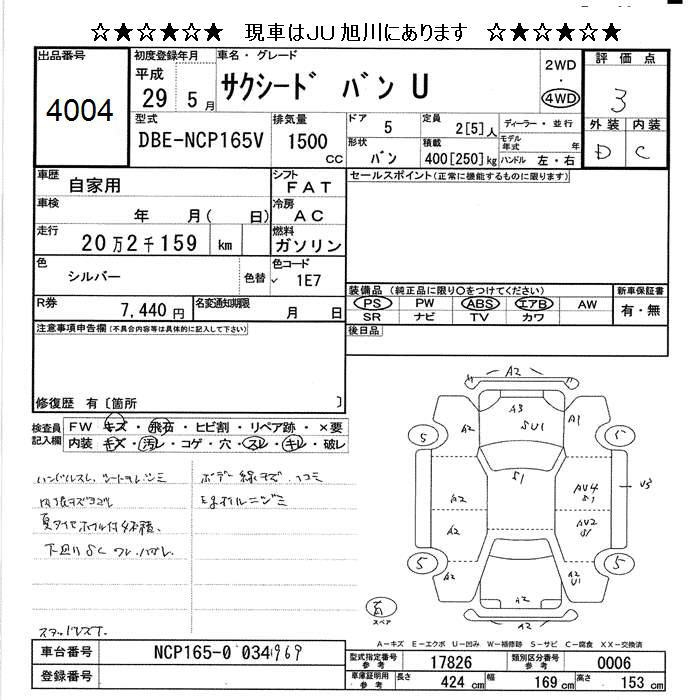 ☆★☆★☆★ 現車はJU旭川にあります ☆★☆★☆★
出品番号
4004
初度登録年月
平成
29 5月
車名・グレード
サクシード バン U
2WD
・
4WD
評価点
3
外装 内装
D C
型式
DBE-NCP165V
排気量
1500
CC
ドア
5
定員
2[5]人
ディーラー・並行
形状
バン
積載
400[250]kg
モデル年式 年
ハンドル 左・右
車歴
自家用
シフト
FAT
セールスポイント(正常に機能するものに限ります)
車検
年 月( 日)
冷房
AC
走行
20万2千159 km
燃料
ガソリン
色
シルバー
色替
色コード
1E7
装備品 (純正品に限り○をつけてください)
新車保証書
PS PW ABS エアB AW
有・無
SR ナビ TV カワ
R券
7,440円
名変通知期限
月 日
後日品
注意事項申告欄(不具合内容等は具体的に記入して下さい)
修復歴 有〔箇所 〕
検査員記入欄
FW キズ・飛石・ヒビ割・リペア跡・×要
内装 キズ・汚レ・コゲ・穴・スレ・キレ・破レ
ハンドルスレ、シートヨレ、シミ
内張キズヨゴレ
夏タイヤホイル付4本積、
下回りSC
スタッドレス
ボデー線キズ、凹コミ
オイルニジミ
A2
A2
A3
SU1
A1
5
5
S1
A2
AU4
S1
A2
AU2
S1
5
5
A2
A2
U1
A2
スペア
A-キズ E-エクボ U-凹み W-補修跡 S-サビ C-腐食 XX-交換済
車台番号
NCP165-0 034969
登録番号
型式指定番号
参考
17826
類別区分番号
参考
0006
車庫証明用
参考
長さ
424 cm
幅
169 cm
高さ
153 cm